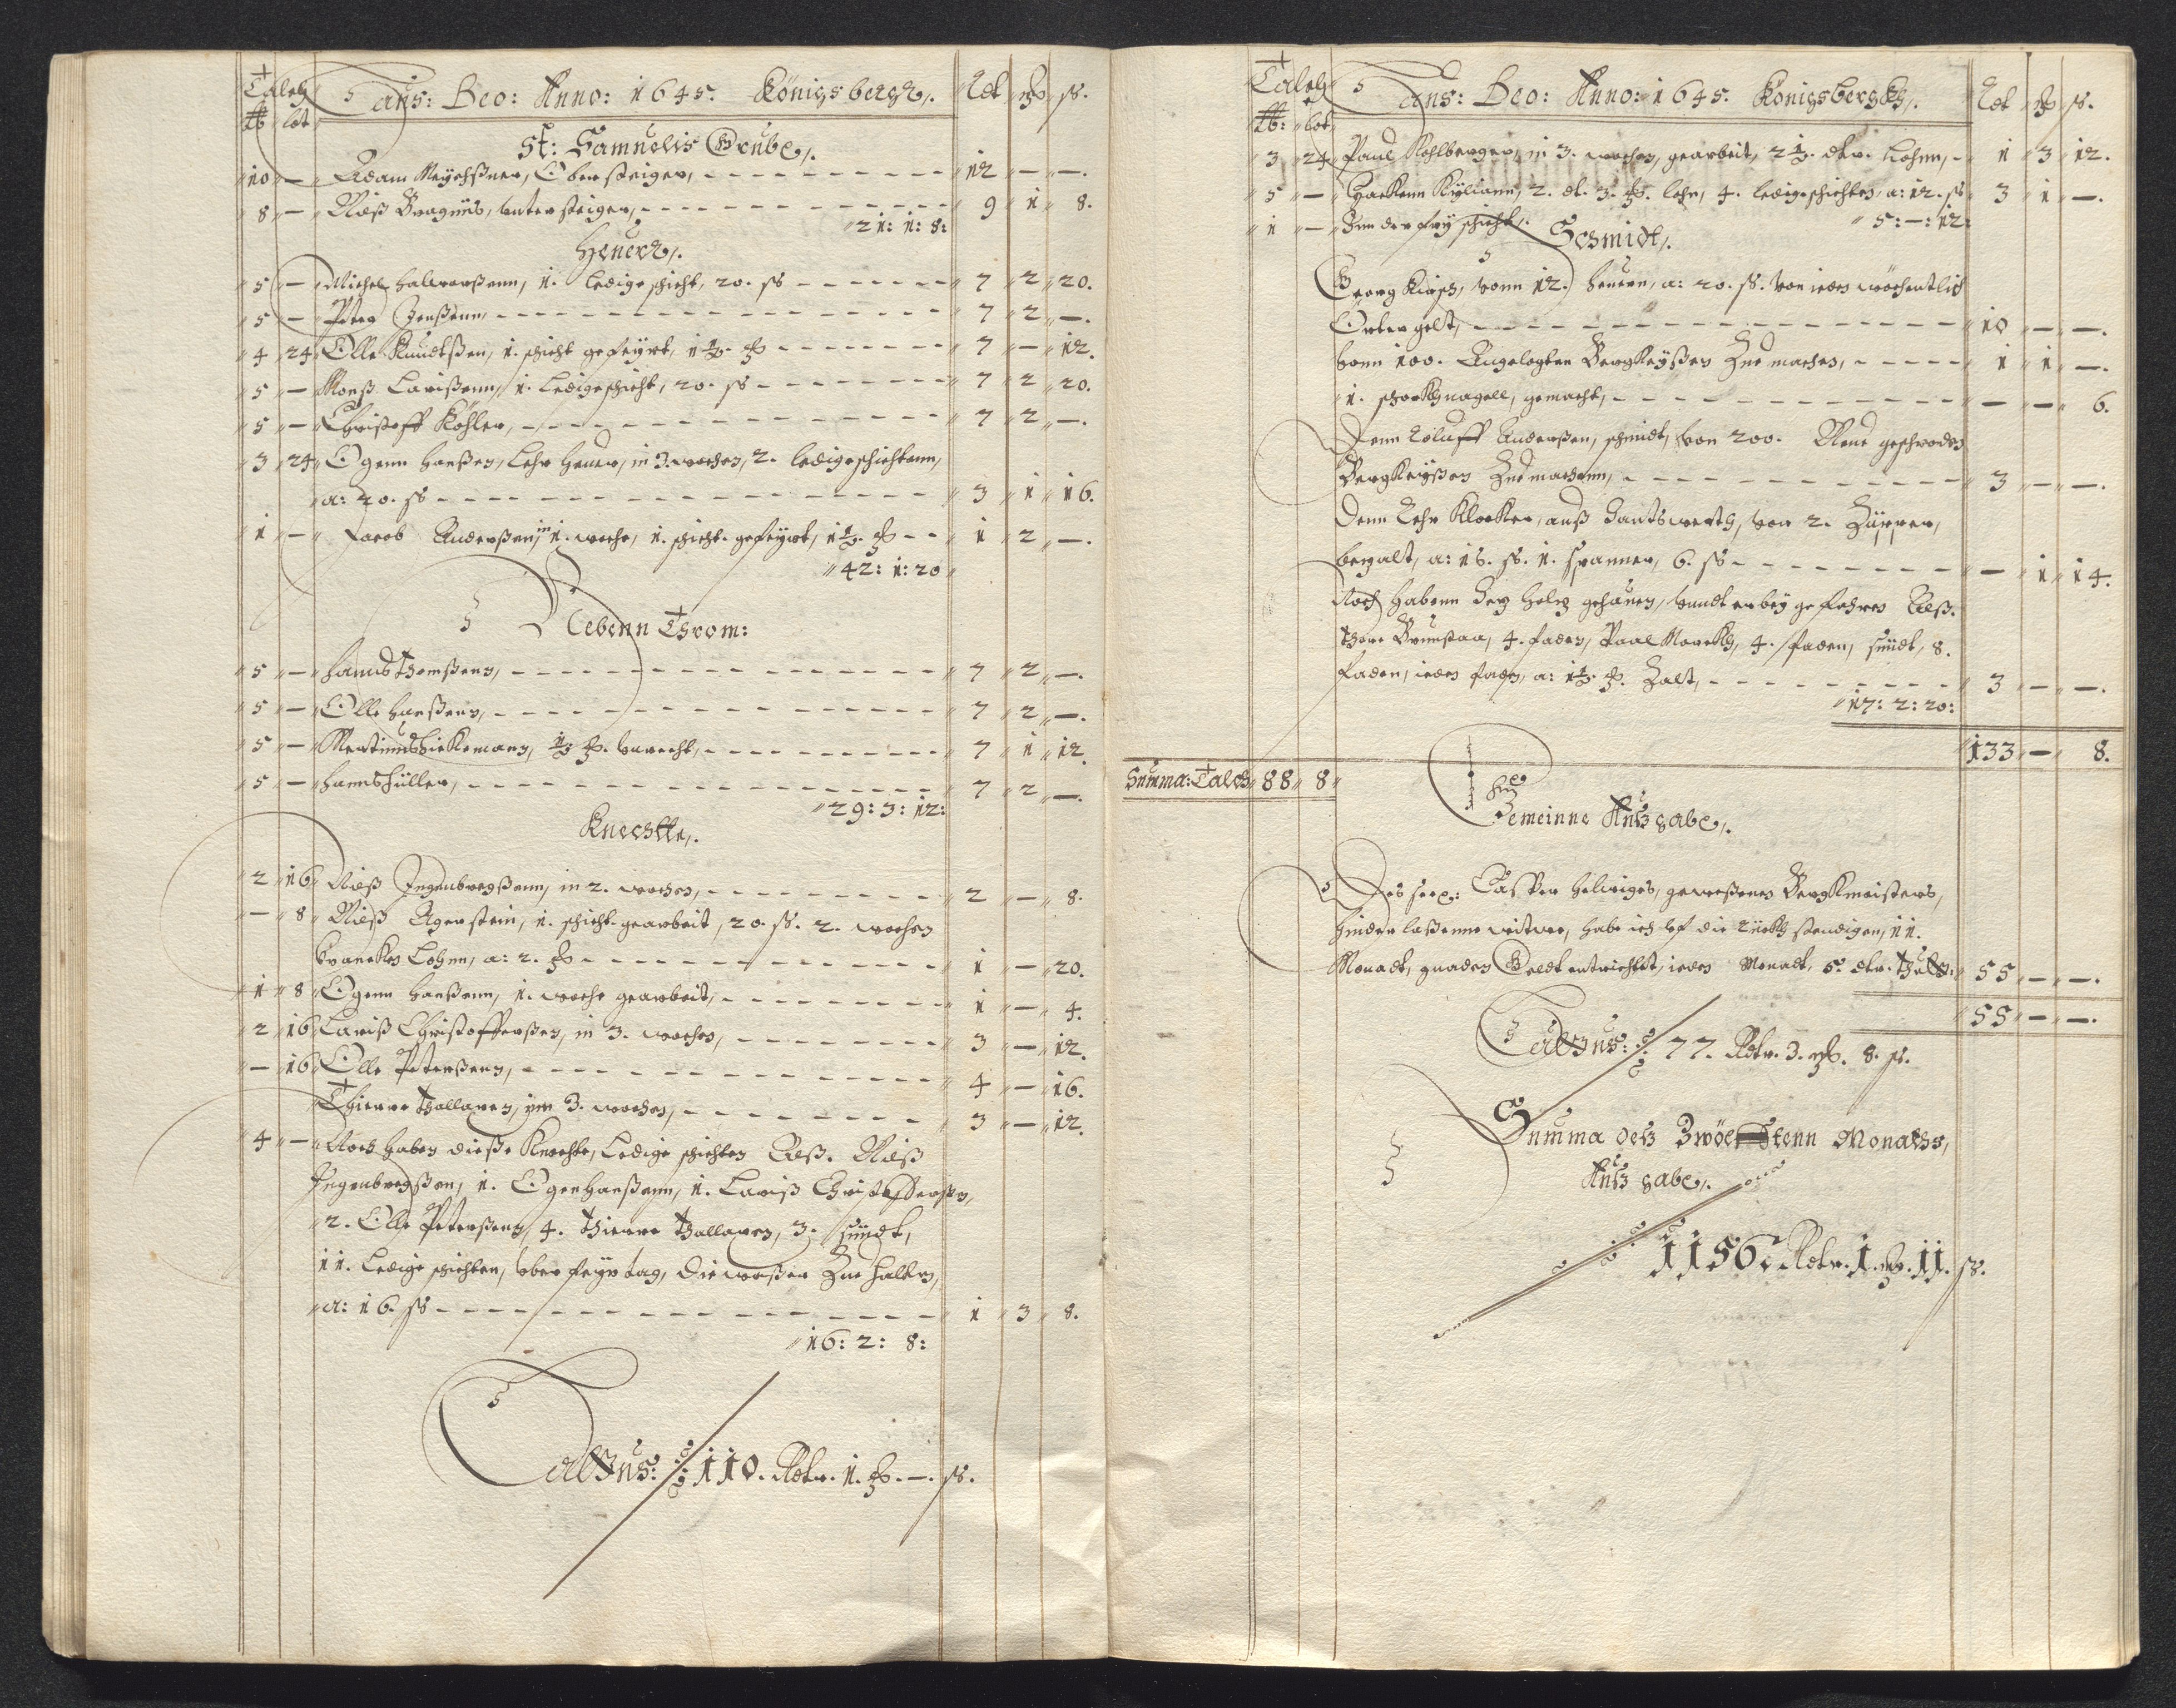 Talch
℔ lot
Laus: Deo: Anno: 1645. Königsbergk /. Rdt ȹ ß.
St: Samuelis Grube /.
10 — Adam Meychßner, Obersteiger, 12 — —.
8 — Nielß Bragniß, Untersteiger, 9 1 8.
21: 1: 8:
Heuer /.
5 — Michel Halvorßenn, 1. ledige schicht, 20. ß 7 2 20.
5 — Peter Jenßenn, 7 2 —.
4 24 Olle Knudtßen, 1. schicht gefeyrt, 1½. 7 — 12.
5 — Monß Larißenn, 1. ledigeschicht, 20. ß 7 2 20.
5 — Christoff Köhler, 7 2 —.
3 24 Ogenn Hanßen, Lehr Heuer, in 3. wochen, 2. ledigeschichtenn,
a: 20. ß 3 1 16.
1 — Jacob Anderßen, in 1. woche, 1. schicht gefeyrt, 1½. 1 2 —.
42: 1: 20
Nebenn Throm:
5 — Hannß Thomßenn, 7 2 —.
5 — Olle Hanßenn, 7 2 —.
5 — Mertinus Hickemann, ½ unrecht, 7 1 12.
5 — Hannß Füller, 7 2 —.
29: 3: 12:
Knechtte /.
2 16 Nielß Ingenbregßenn, in 2. wochen, 2 — 8.
— 8 Nielß Agerstein, 1. schicht gearbeit, 20. ß. 2. wochen
krancken Lohnn, a: 2. 1 — 20.
1 8 Ogenn Hanßenn, 1. woche gearbeit, 1 — 4.
2 16 Lariß Christofferßen, in 3. wochen, 3 — 12.
— 16 Olle Peterßenn, 4 — 16.
Thierre Thollaven, inn 3. wochen, 3 — 12.
4 — Noch haben dieße Knechte, Ledige schichten Alß. Nielß
Ingenbregßen, 1. Ogen Hanßenn, 1. Lariß Christofferßen,
2. Olle Peterßenn, 4. Thierre Thollaven, 3. sindt,
11. Ledige schichten, uber feyrtag, die waßer Zue halten,
a: 16. ß 1 3 8.
16: 2: 8:
Latus: 110. Rdtr. 1. —. ß.
Talch
℔: lot
Laus: Deo: Anno: 1645. Königsbergk /. Rdt ß.
3 24 Paul Kohlberger, in 3. wochen, gearbeit, 2½. dlr. Lohnn, 1 3 12.
5 — Hackenn Kyliann, 2. dl. 3. lohn, 4. ledige schichten, a: 12. ß 3 1 —.
1 — Inn der frey schicht /. 5: —: 12:
Schmidt /.
Georg Kirsch, vonn 12. heuern, a: 20. ß. von ieden wöchentlich
Örter gelt, 10 — —.
vonn 100. Angelegten Bergkeyßen Zue machen, 1 1 —.
1. schockh nagell, gemacht, — — 6.
Denn Toluff Anderßen, schmidt, von 200. Neue geschroden
Bergkeyßen Zue machenn, 3 — —.
Denn Lehr Klocker, auß Santswerth, von 2. Züpper,
bezalt, a: 16. ß. 1. spanner, 6. ß — 1 14.
Noch habenn Zey holtz gehauen, unndt anbey gefahren Alß.
Thore Brunstaa, 4. faden, Paal Moreckh, 4. faden, sindt, 8.
faden, ieden faden, a: 1½. Zalt, 3 — —.
17: 2: 20:
133 — 8.
Summa: Talch 88 8
Gemeinne Außgabe /.
Des seel: Casper Helriges, geweßenen Bergkmeisters,
hinderlaßenne witwe, habe ich uf die rückstendigen, 11.
Monadt, gnaden Geldt entrichtet, ieden Monadt, 5. dlr. thutt: 55 — —.
55 — —.
Latus: 77. Rdtr. 3. 8. ß.
Summa deß Zwölfftenn Monathß,
Außgabe /.
1156. Rdtr. 1. 11. ß.